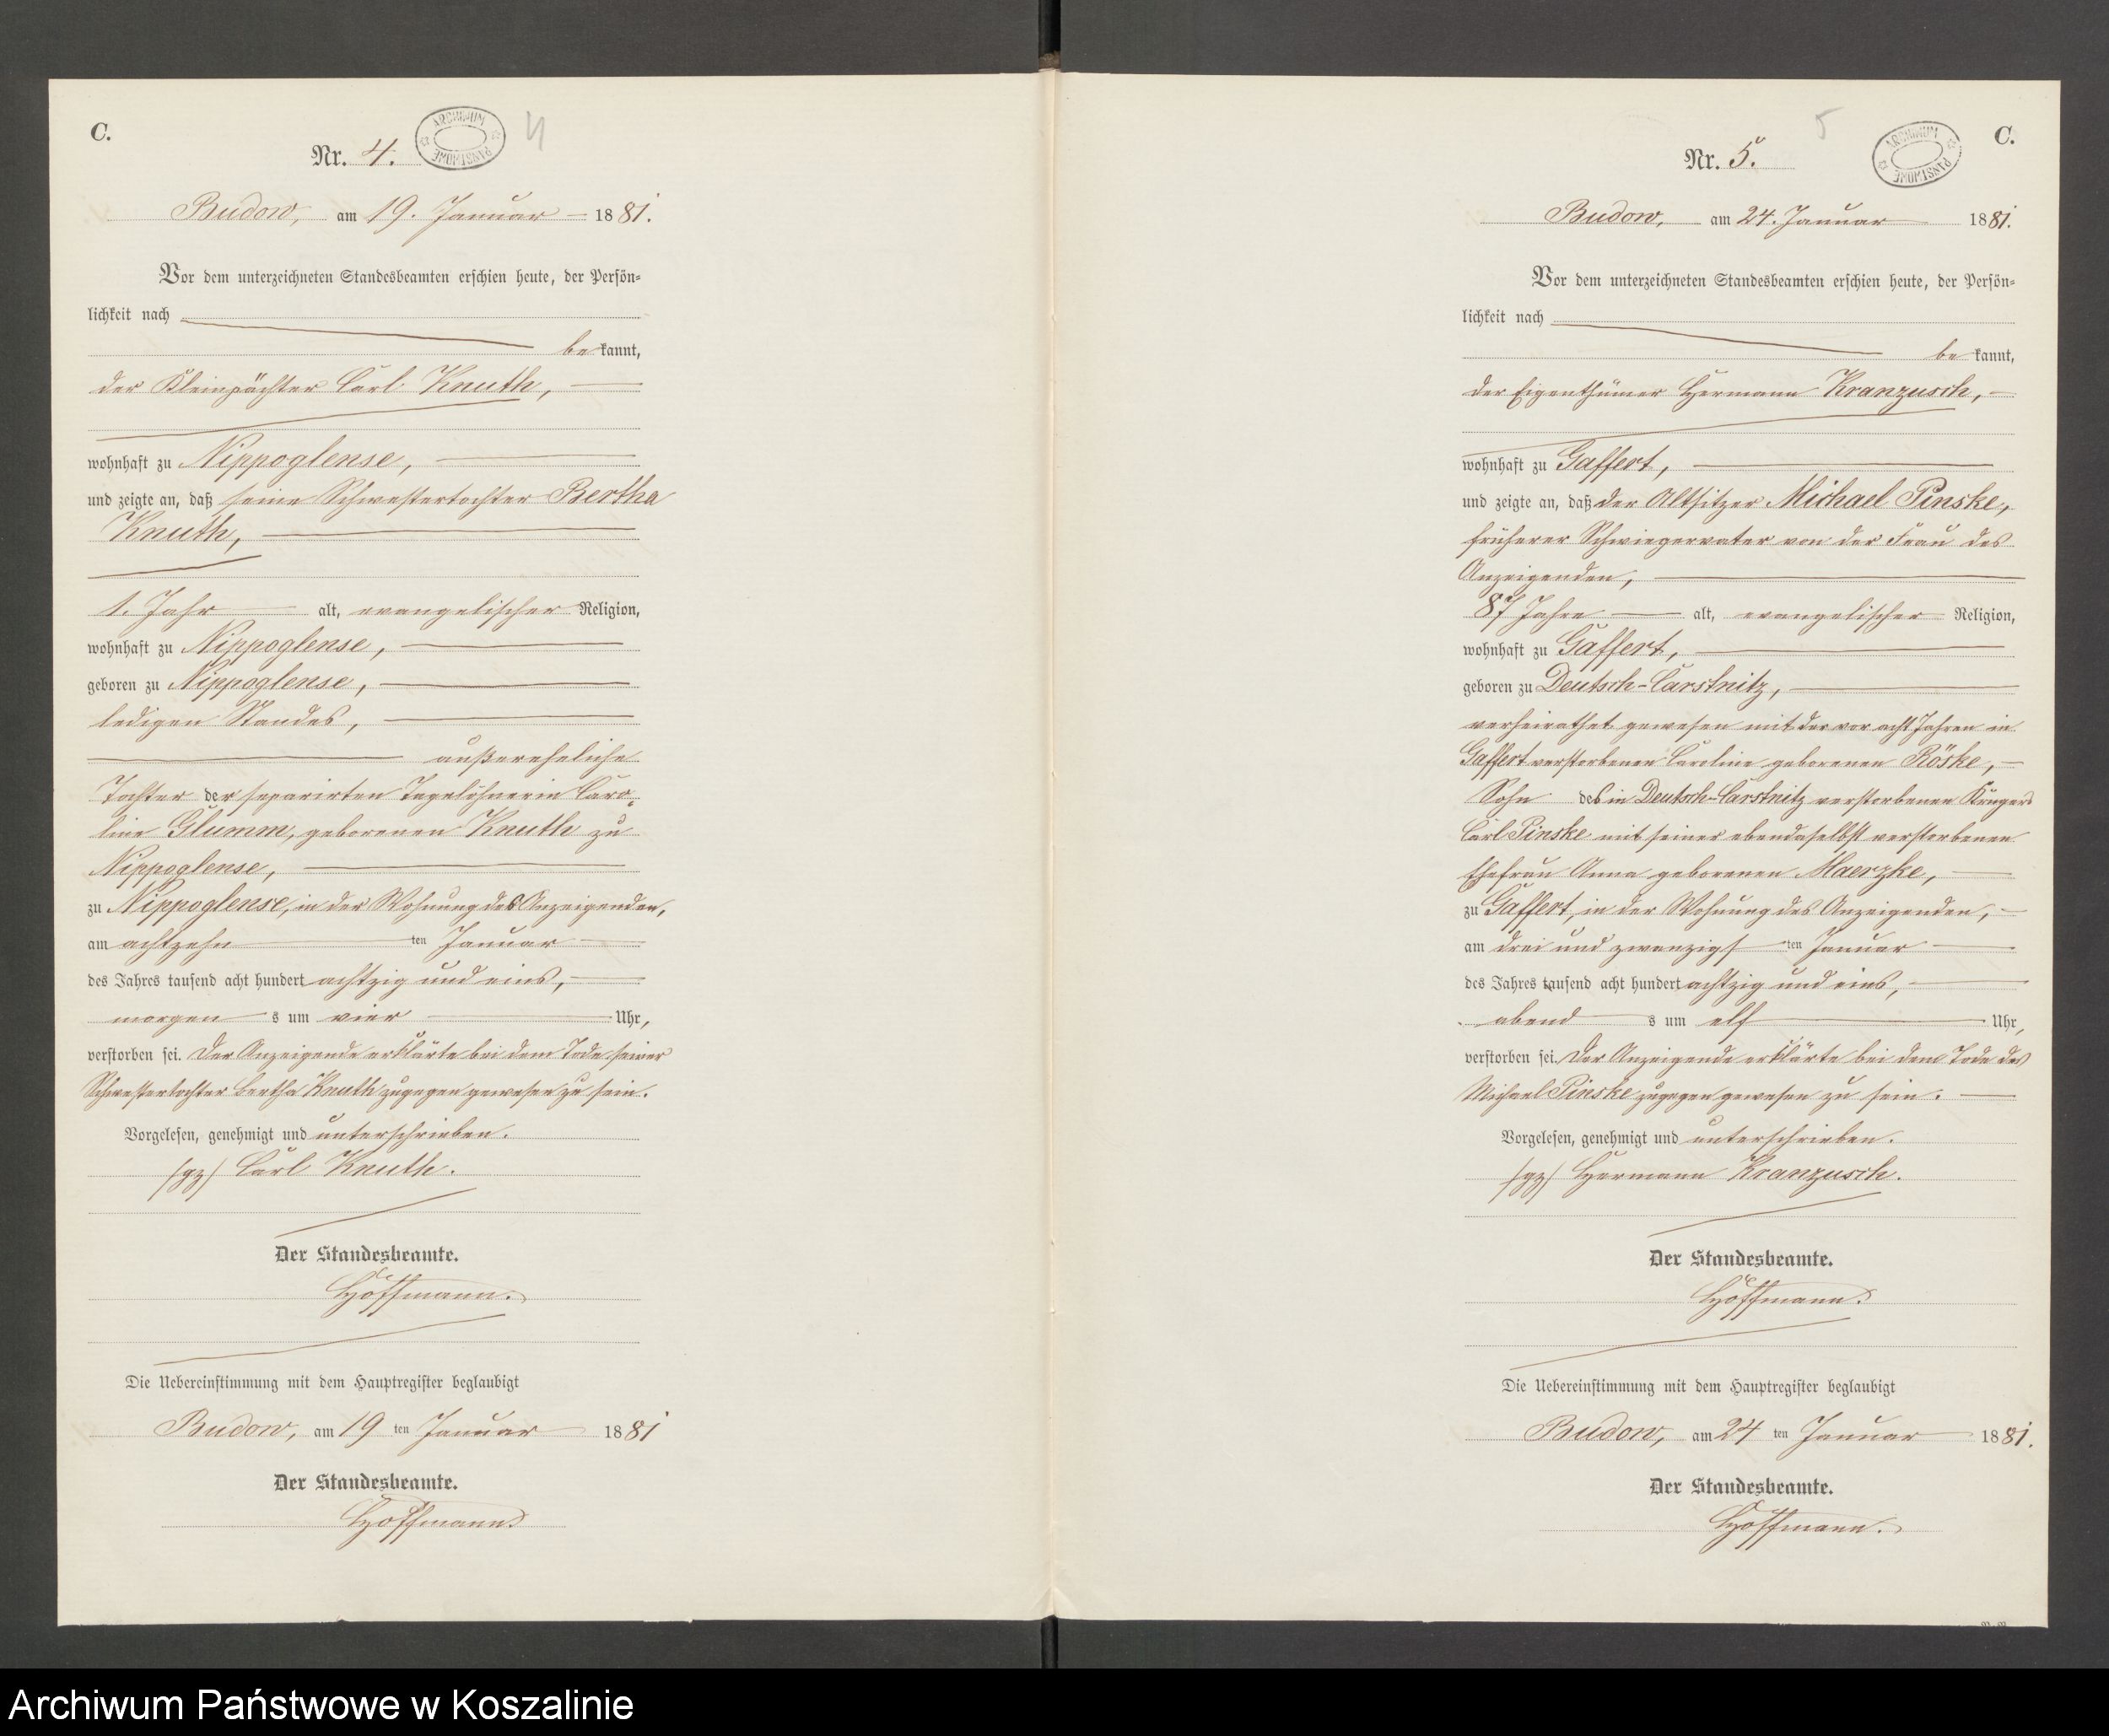 C.
Nr. 4.
ARCHIWUM PAŃSTWOWE
4
Budow, am 19. Januar 1881.
Vor dem unterzeichneten Standesbeamten erschien heute, der Persön-
lichkeit nach
bekannt,
der Kleinpächter Carl Knuth,
wohnhaft zu Nippoglense,
und zeigte an, daß seine Schwestertochter Bertha
Knuth,
1. Jahr alt, evangelischer Religion,
wohnhaft zu Nippoglense,
geboren zu Nippoglense,
ledigen Standes,
außereheliche
Tochter der separirten Tagelöhnerin Caro-
line Glumm, geborenen Knuth zu
Nippoglense,
zu Nippoglense, in der Wohnung des Anzeigenden,
am achtzehn ten Januar
des Jahres tausend acht hundert achtzig und eins,
morgen s um vier Uhr,
verstorben sei. Der Anzeigende erklärte bei dem Tode seiner
Schwestertochter Bertha Knuth zugegen gewesen zu sein.
Vorgelesen, genehmigt und unterschrieben.
(gz) Carl Knuth.
Der Standesbeamte.
Hoffmann.
Die Uebereinstimmung mit dem Hauptregister beglaubigt
Budow, am 19 ten Januar 1881
Der Standesbeamte.
Hoffmann.
5
C.
Nr. 5.
ARCHIWUM PAŃSTWOWE
Budow, am 24. Januar 1881.
Vor dem unterzeichneten Standesbeamten erschien heute, der Persön-
lichkeit nach
bekannt,
der Eigenthümer Hermann Kranzusch,
wohnhaft zu Gaffert,
und zeigte an, daß der Altsitzer Michael Pinske,
früherer Schwiegervater von der Frau des
Anzeigenden,
87 Jahre alt, evangelischer Religion,
wohnhaft zu Gaffert,
geboren zu Deutsch-Carstnitz,
verheirathet gewesen mit der vor acht Jahren in
Gaffert verstorbenen Caroline geborenen Röske,
Sohn des in Deutsch-Carstnitz verstorbenen Krügers
Carl Pinske mit seiner ebendaselbst verstorbenen
Ehefrau Anna geborenen Maerzke,
zu Gaffert, in der Wohnung des Anzeigenden,
am drei und zwanzigs ten Januar
des Jahres tausend acht hundert achtzig und eins,
abend s um elf Uhr,
verstorben sei. Der Anzeigende erklärte bei dem Tode des
Michael Pinske zugegen gewesen zu sein.
Vorgelesen, genehmigt und unterschrieben.
(gz) Hermann Kranzusch.
Der Standesbeamte.
Hoffmann.
Die Uebereinstimmung mit dem Hauptregister beglaubigt
Budow, am 24 ten Januar 1881.
Der Standesbeamte.
Hoffmann.
Archiwum Państwowe w Koszalinie